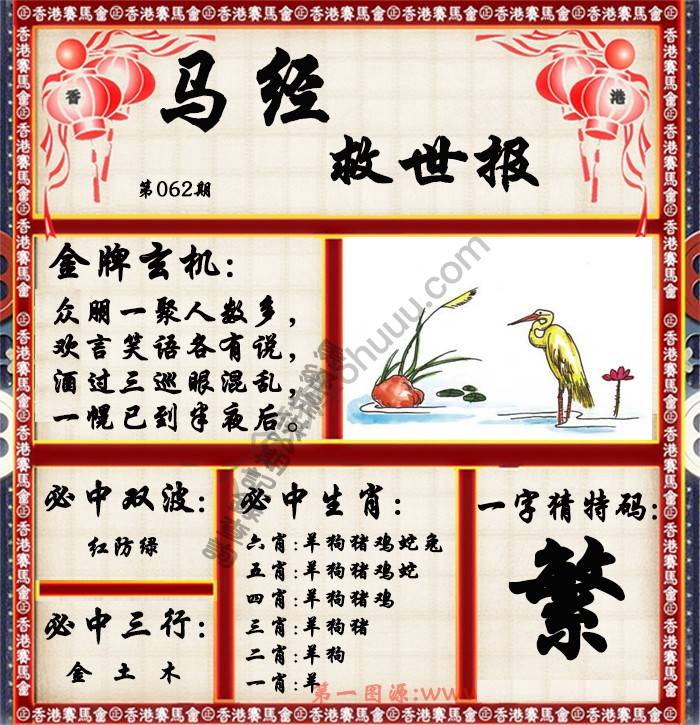 香港賽馬會
香
港
马经
救世报
第062期
金牌玄机:
众朋一聚人数多，
欢言笑语各有说，
酒过三巡眼混乱，
一幌已到半夜后。
必中双波:
红防绿
必中三行:
金土木
必中生肖:
六肖:羊狗猪鸡蛇兔
五肖:羊狗猪鸡蛇
四肖:羊狗猪鸡
三肖:羊狗猪
二肖:羊狗
一肖:羊
一字猜特码:
繁
第一图源:www